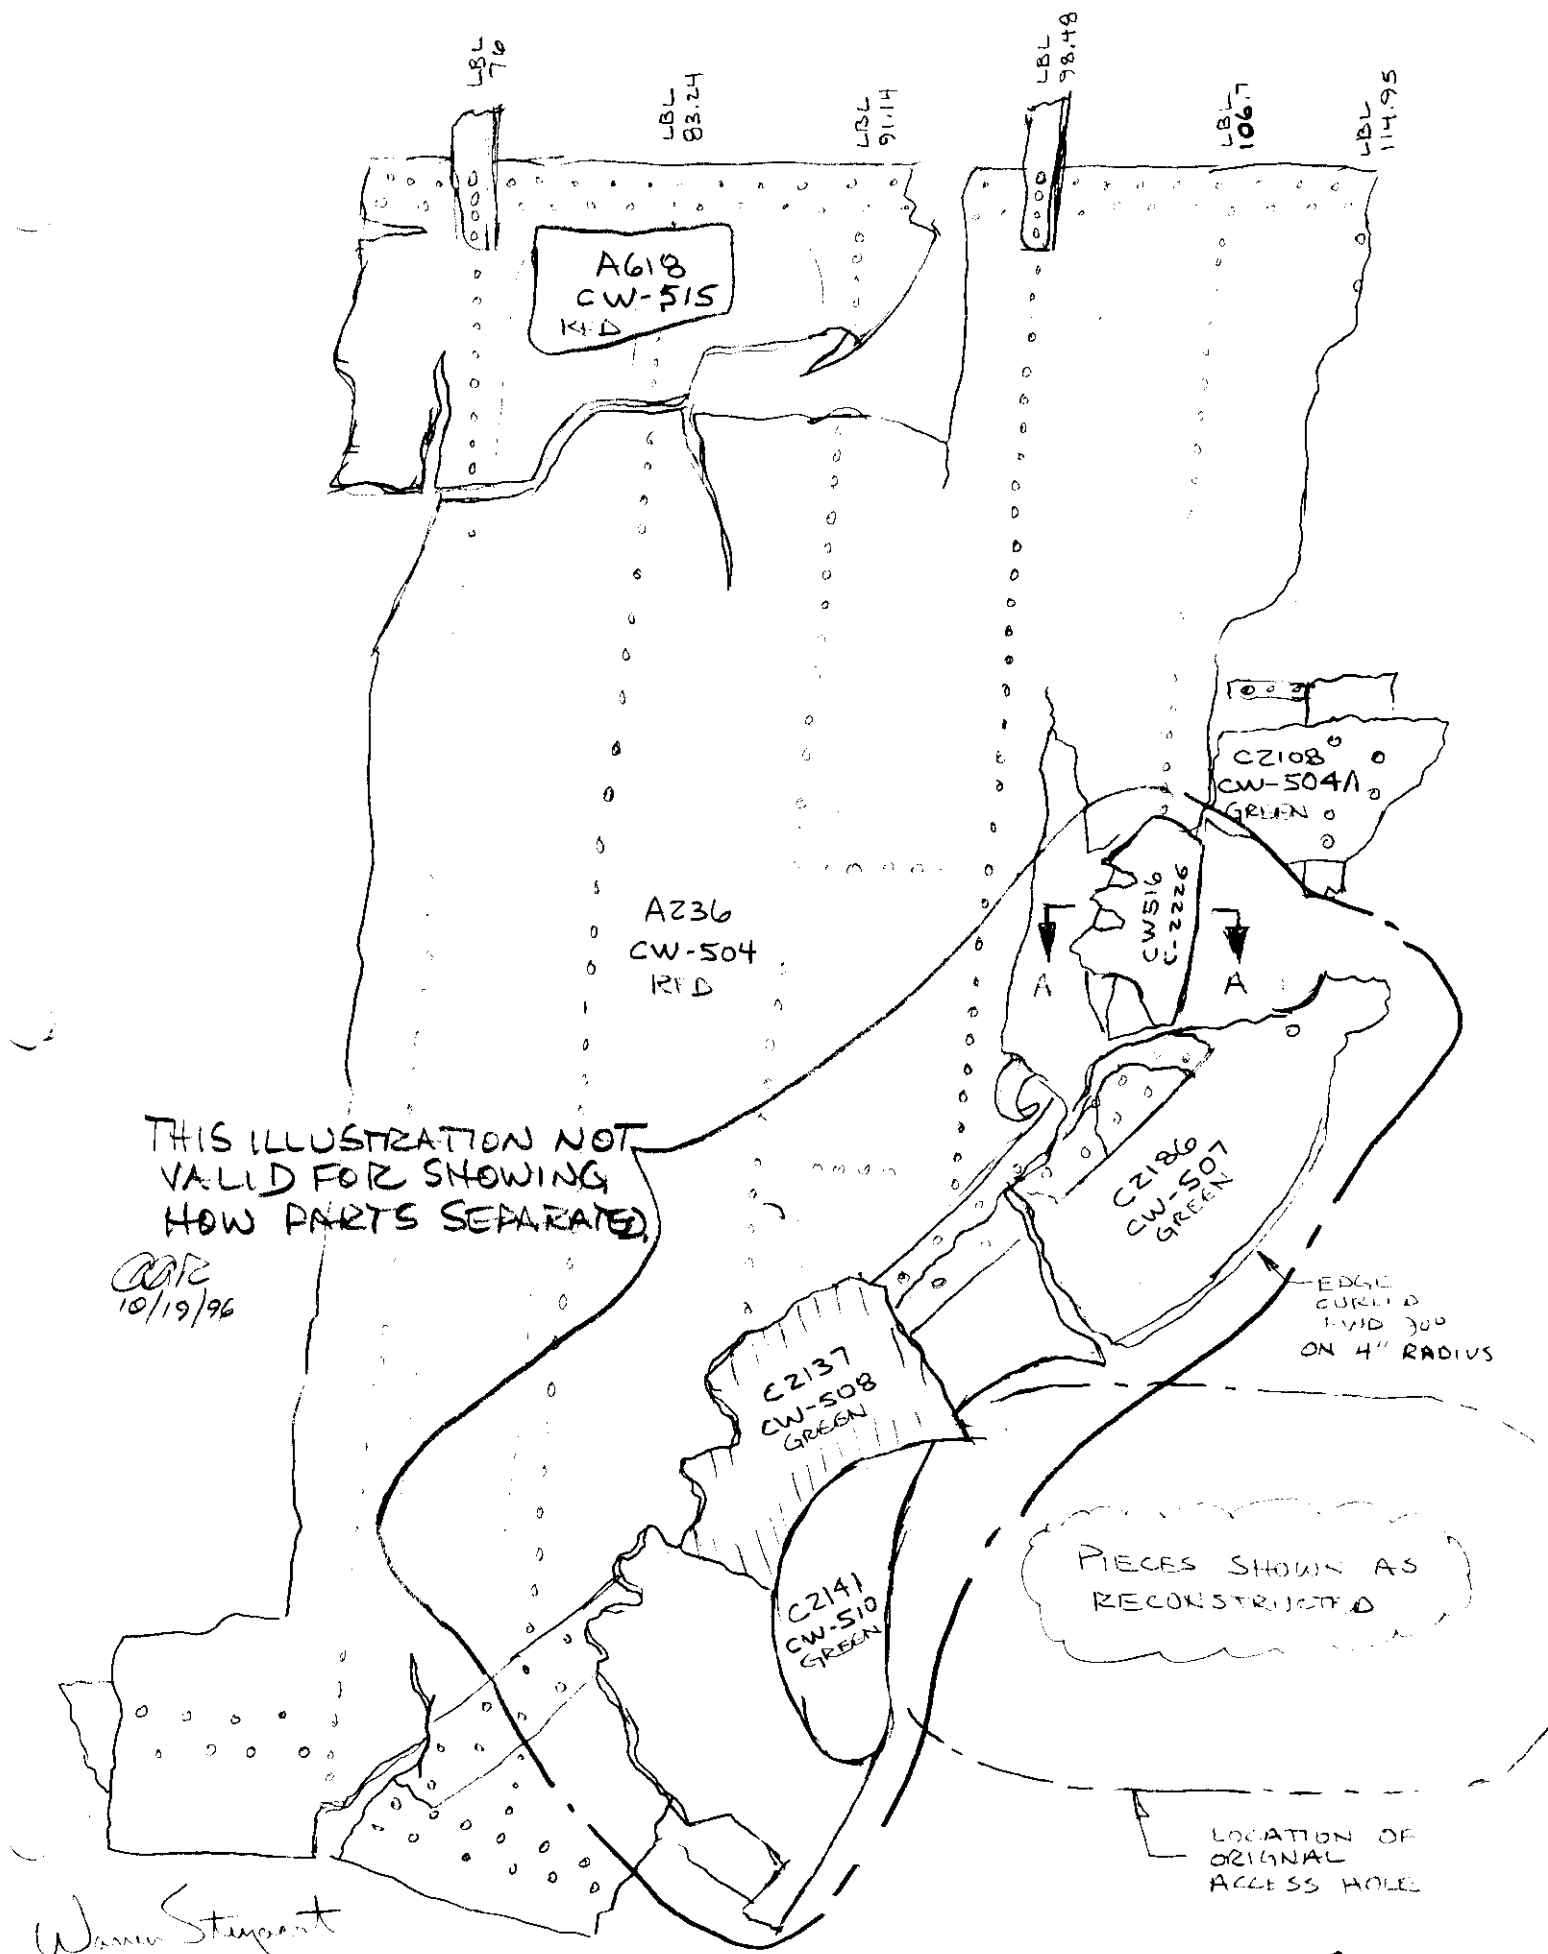 LBL
76
LBL
83.24
LBL
91.14
LBL
98.48
LBL
106.7
LBL
114.95
A618
CW-515
RED
C2108
CW-504A
GREEN
CW516
C-2226
A236
CW-504
RED
A
A
C2186
CW-507
GREEN
THIS ILLUSTRATION NOT
VALID FOR SHOWING
HOW PARTS SEPARATED.
10/19/96
EDGE
CURLED
ON 4" RADIUS
C2137
CW-508
GREEN
C2141
CW-510
GREEN
PIECES SHOWN AS
RECONSTRUCTED
LOCATION OF
ORIGNAL
ACCESS HOLE
Warren